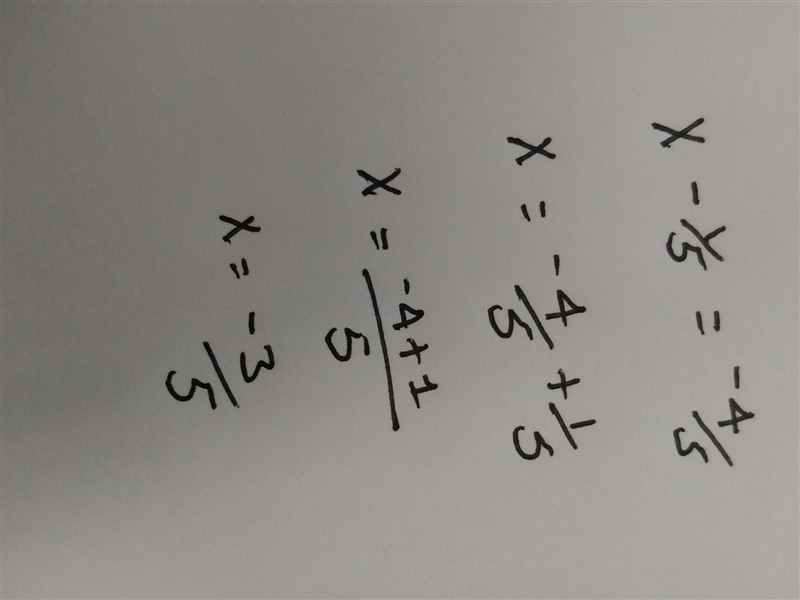 x - 1/5 = -4/5
x = -4/5 + 1/5
x = -4+1/5
x = -3/5